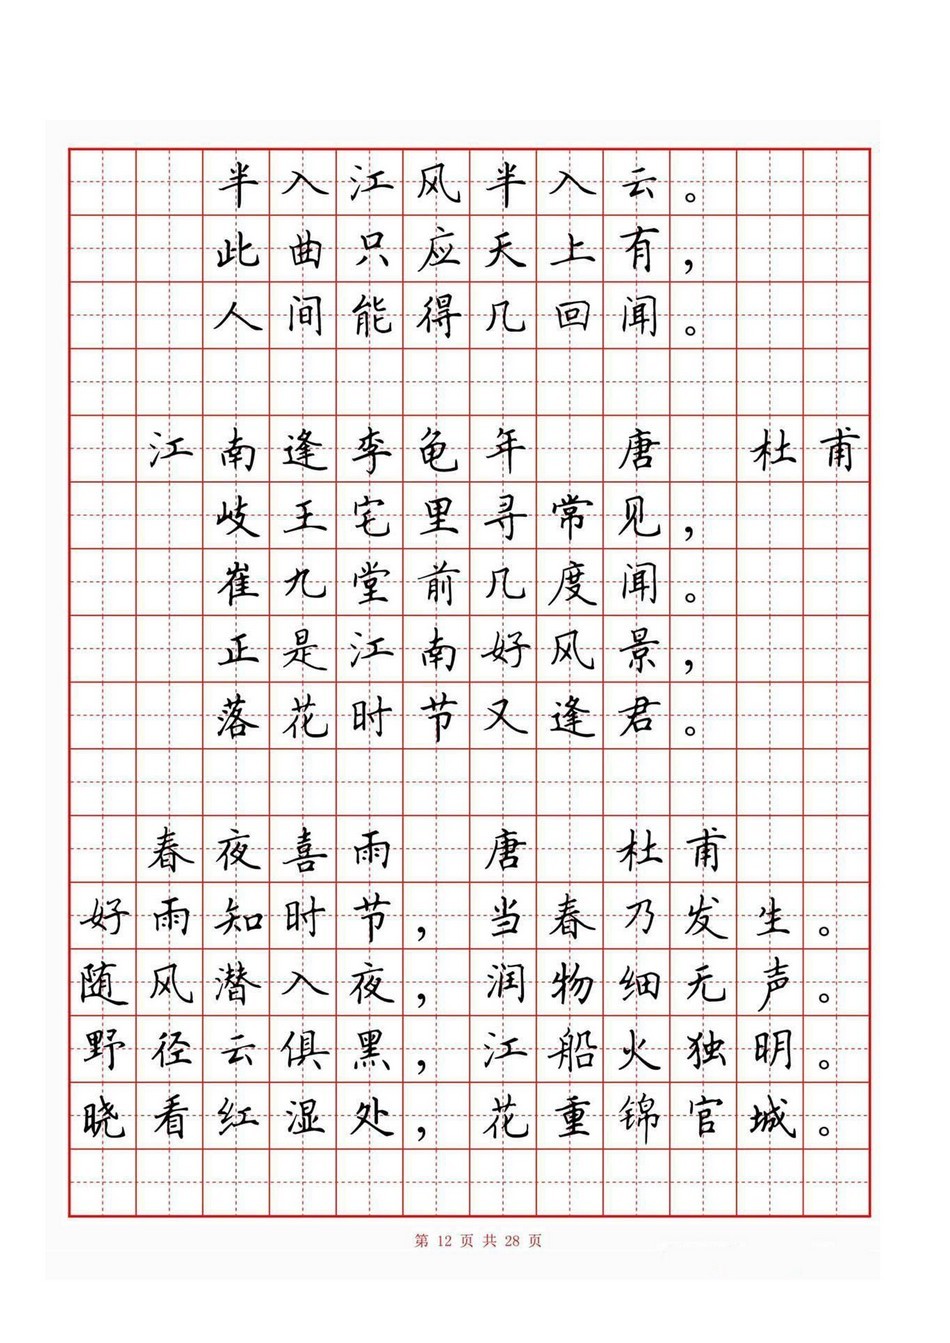 半入江风半入云。
此曲只应天上有，
人间能得几回闻。
江南逢李龟年 唐 杜甫
岐王宅里寻常见，
崔九堂前几度闻。
正是江南好风景，
落花时节又逢君。
春夜喜雨 唐 杜甫
好雨知时节，当春乃发生。
随风潜入夜，润物细无声。
野径云俱黑，江船火独明。
晓看红湿处，花重锦官城。
第 12 页 共 28 页